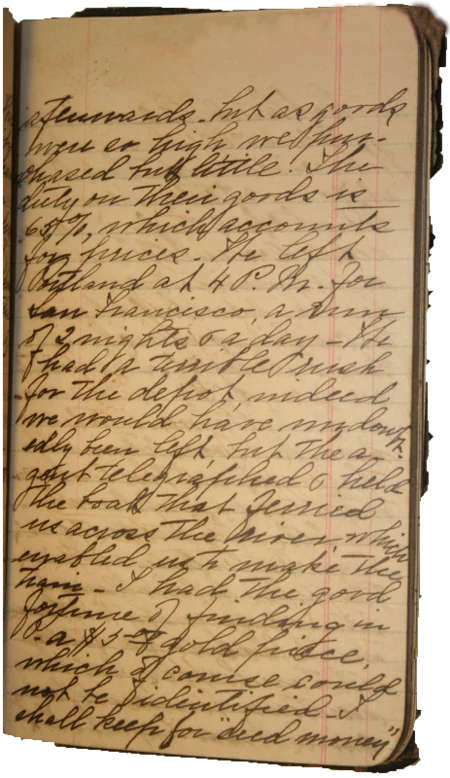 afterwards - but as goods
were so high we pur-
chased but little. The
duty on their goods is
65%, which accounts
for prices - We left
Portland at 4 P.M. for
San Francisco, a run
of 2 nights & a day - We
had a terrible rush
for the depot, indeed
we would have undoubt-
edly been left, but the a-
gent telegraphed & held
the boat that ferried
us across the river which
enabled us to make the
train - I had the good
fortune of finding in
P - a $5 gold piece,
which of course could
not be identified - I
shall keep for "deed money"